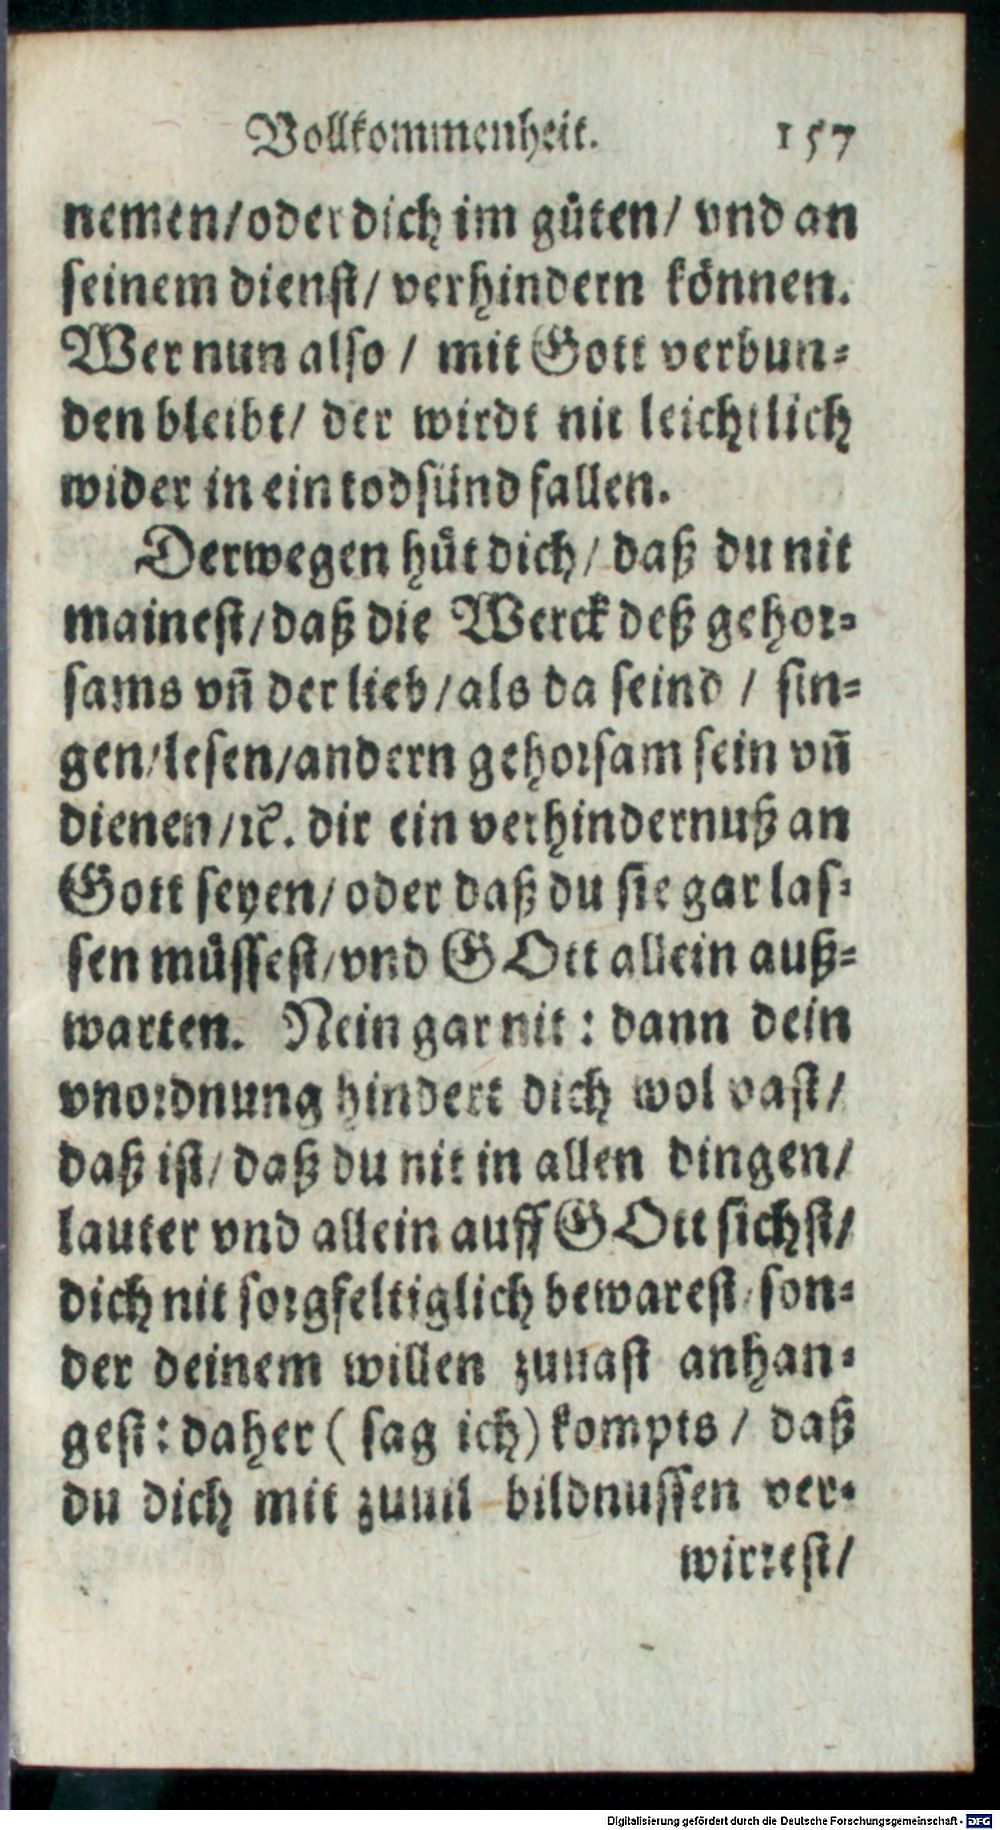 Vollkommenheit. 157
nemen/oder dich im güten/ vnd an
seinem dienst/ verhindern können.
Wer nun also / mit Gott verbun-
den bleibt/ der wirdt nit leichtlich
wider in ein todsünd fallen.
Derwegen hüt dich/ daß du nit
mainest/daß die Werck deß gehor-
sams vñ der lieb/als da seind / sin-
gen/lesen/andern gehorsam sein vñ
dienen/ꝛc. dir ein verhindernuß an
Gott seyen/oder daß du sie gar las-
sen müssest/vnd GOtt allein auß-
warten. Nein gar nit: dann dein
vnordnung hindert dich wol vast/
daß ist/daß du nit in allen dingen/
lauter vnd allein auff GOtt sichst/
dich nit sorgfeltiglich bewarest/son-
der deinem willen zuuast anhan-
gest: daher ( sag ich) kompts / daß
du dich mit zuuil bildnussen ver-
wirrest/
Digitalisierung gefördert durch die Deutsche Forschungsgemeinschaft - DFG